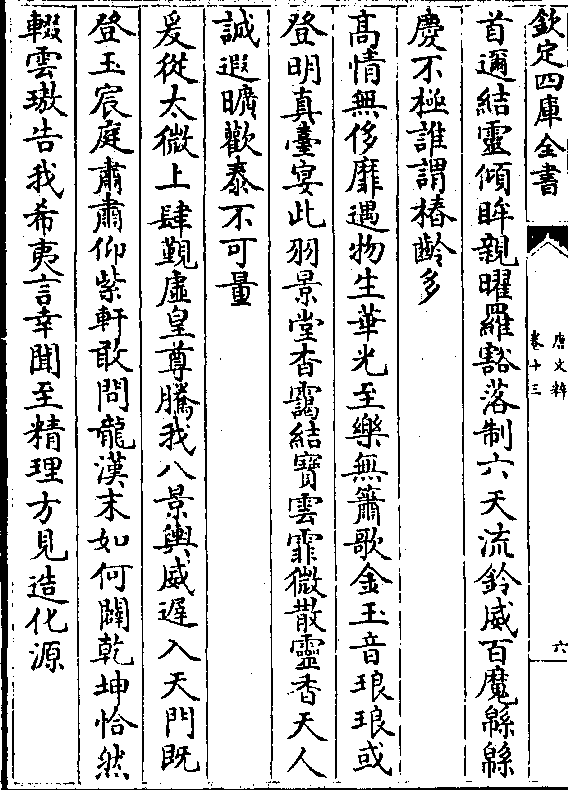 欽定四庫全書
唐文粹
卷十三
六
首邇結靈傾眸親曜羅豁落制六天流鈴威百魔緜緜
慶不極誰謂椿齡多
髙情無侈靡遇物生華光至樂無簫歌金玉音琅琅或
登明真臺宴此羽景堂杳靄結寶雲霏微散靈香天人
誠遐曠歡泰不可量
爰從太微上肆覲虛皇尊騰我八景輿威遲入天門既
登玉宸庭肅肅仰紫軒敢問龍漢末如何闢乾坤恰然
輟雲璈告我希夷言幸聞至精理方見造化源